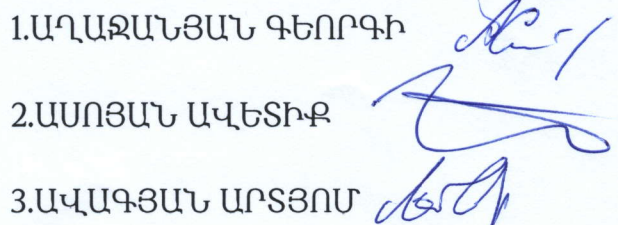 1.ԱՂԱՋԱՆՅԱՆ ԳԵՈՐԳԻ
2.ԱՍՈՅԱՆ ԱՎԵՏԻՔ
3.ԱՎԱԳՅԱՆ ԱՐՏՅՈՄ